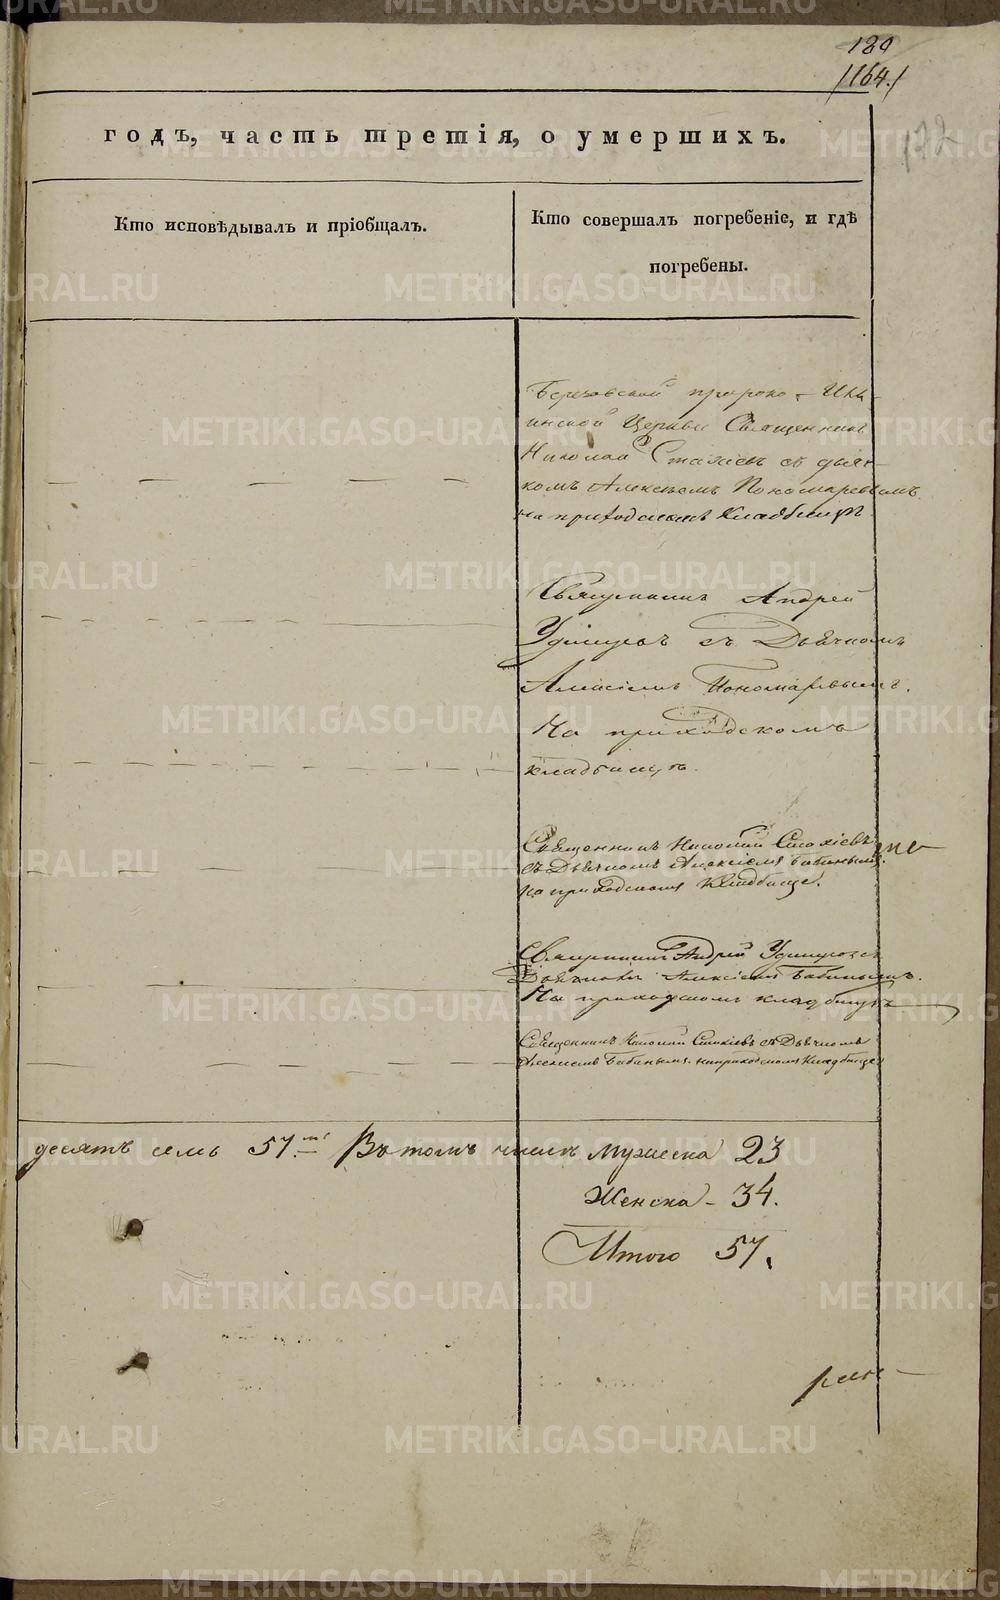 180
/164./
172
годъ, часть третія, о умершихъ.
Кто исповѣдывалъ и пріобщалъ.
Кто совершалъ погребеніе, и гдѣ
погребены.
Березовской пророко-Иль-
инской Церкви Священникъ
Николай съ дьяч-
комъ Алексѣемъ Пономаревымъ
на приходскомъ кладбищѣ.
Священникъ Андрей
съ Дьячкомъ
Алексіемъ Пономаревымъ.
На приходскомъ
кладбищѣ.
Священникъ Николай
съ Дьячкомъ Алексіемъ Бабинымъ
на приходскомъ кладбище.
Священникъ Андрей съ
Дьячкомъ Алексіемъ Бабинымъ.
На приходскомъ кладбищѣ
Священникъ Николай съ Дьячкомъ
Алексіемъ Бабинымъ на приходскомъ кладбище
десятъ семь 57. Въ томъ числѣ мужеска 23
Женска - 34.
Итого 57.
METRIKI.GASO-URAL.RU